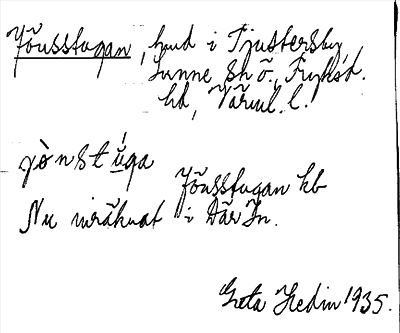 Jönsstugan, hmd i Tjustersby,
Sunne sn ö., Fryksd.
hd, Värml. l.
jònstúga
Jönsstugan kb
Nu inräknat i Där In.
Greta Hedin 1935.